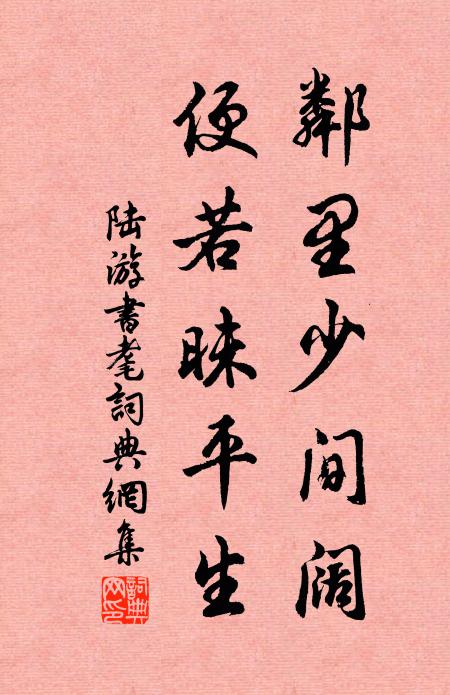 鄰里少间阔
便若昧平生
陆游書耄詞典網集
詞典网印